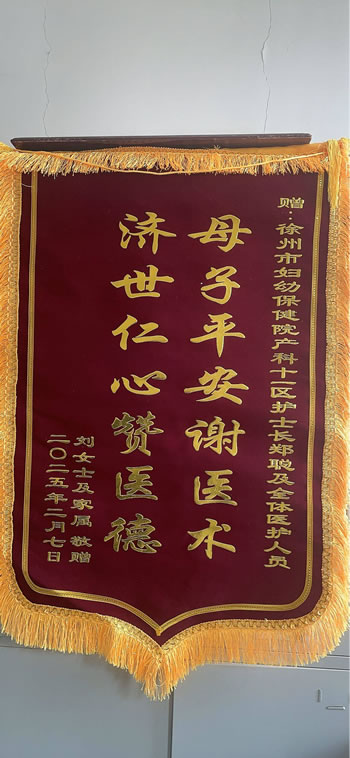 赠：徐州市妇幼保健院产科十一区护士长郑聪及全体医护人员
母子平安谢医术
济世仁心赞医德
刘女士及家属 敬赠
二〇二五年二月七日